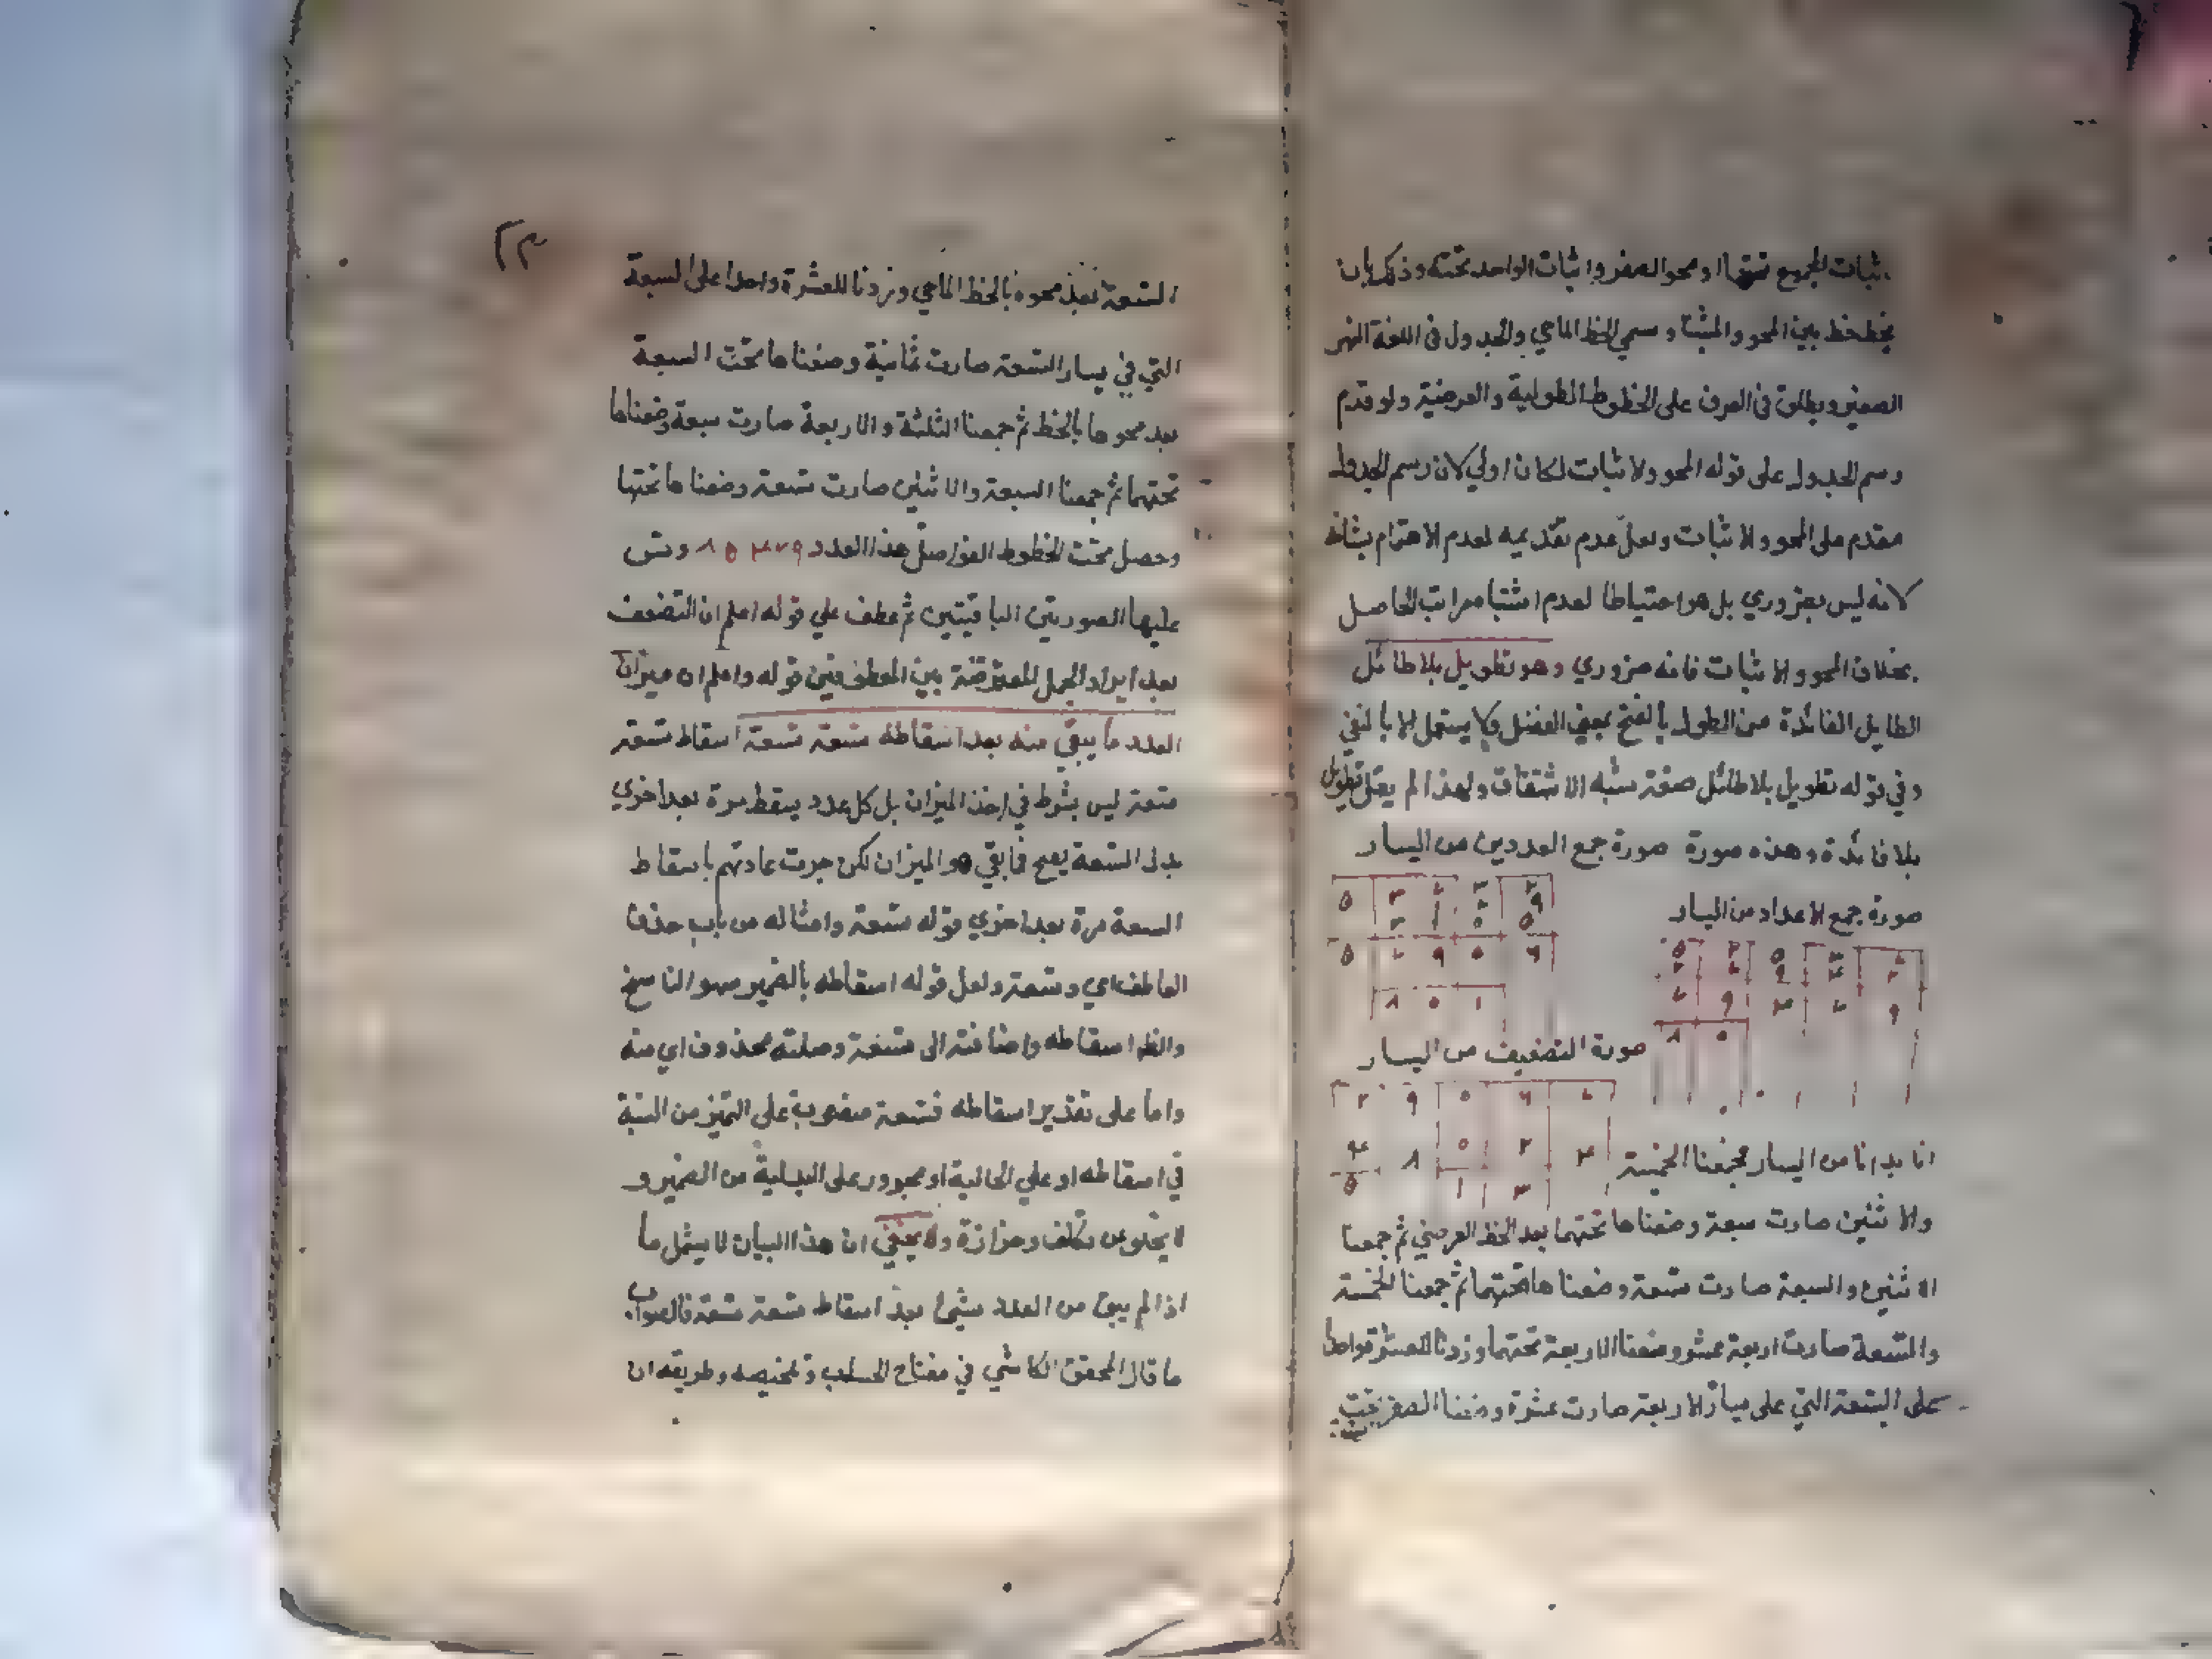 اثبات الجميع تحتها او محو الصفر واثبات الواحد تحته وذلك بان
يخط خط بين المحو والمثبت وسمي الخط الماحي والجدول في اللغة النهر
الصغير ويطلق في العرف على الخطوط الطولية والعرضية ولو قدم
رسم الجدول على قوله المحو والاثبات لكان اولي لان رسم الجدول
مقدم على المحو والاثبات ولعل عدم تقديمه لعدم الاهتمام بشانه
لانه ليس بضروري بل هو احتياطا لعدم اشتباه مراتب الحاصل
بخلاف المحو والاثبات فانه ضروري وهو تطويل بلا طائل
الطايل الفائدة من الطول بالفتح بمعني الفضل ولا يستعمل الا بالنفي
وفي قوله تطويل بلا طائل صفة شبه الاشتقاق ولهذا لم يقل تطويل
بلا فائدة وهذه صورة صورة جمع العددين من اليسار
صورة جمع الاعداد من اليسار
صورة التضعيف من اليسار
انا بدانا من اليسار فجمعنا الخمسة
والاثنين صارت سبعة وضعناها تحتهما بعد الخط العرضي ثم جمعنا
الاثنين والسبعة صارت تسعة وضعناها تحتهما ثم جمعنا الخمسة
والتسعة صارت اربعة عشر وضعنا الاربعة تحتهما وزدنا للعشرة واحدا
على التسعة التي على يسار الاربعة صارت عشرة وضعنا الصفر تحت
٢٣
التسعة بعد محوه بالخط الماحي وزدنا للعشرة واحدا على السبعة
التي في يسار التسعة صارت ثمانية وضعناها تحت السبعة
بعد محوها بالخط ثم جمعنا الثلثة والاربعة صارت سبعة وضعناها
تحتهما ثم جمعنا السبعة والاثنين صارت تسعة وضعناها تحتها
وحصل تحت الخطوط الفواصل هذا العدد وقس
عليها الصورتين الباقيتين ثم عطف علي قوله اعلم ان التضعيف
بعد ايراد الجمل المعترضة بين المعطوفين قوله واعلم ان ميزان
العدد ما يبقي منه بعد اسقاطه تسعة تسعة اسقاط تسعة
تسعة ليس بشرط في اخذ الميزان بل كل عدد يسقط مرة بعد اخري
بدل التسعة يصح فما بقي هو الميزان لكن جرت عادتهم باسقاط
التسعة مرة بعد اخري قوله تسعة وامثاله من باب حذف
العاطف اي وتسعة ولعل قوله اسقاطه بالضمير سهو الناسخ
والظ اسقاطه واضافته الى تسعة وصلته محذوف اي منه
واما على تقدير اسقاطه فتسعة منصوب على التميز من النسبة
في اسقاطه او علي الحالية او مجرور على البدلية من الضمير و
لا يخلو عن تكلف وحزازة ولا يخفي ان هذا البيان لا يشمل ما
اذا لم يبق من العدد شيئ بعد اسقاط تسعة تسعة فالصواب
ما قال المحقق الكاشي في مفتاح الحساب وتلخيصه وطريقه ان